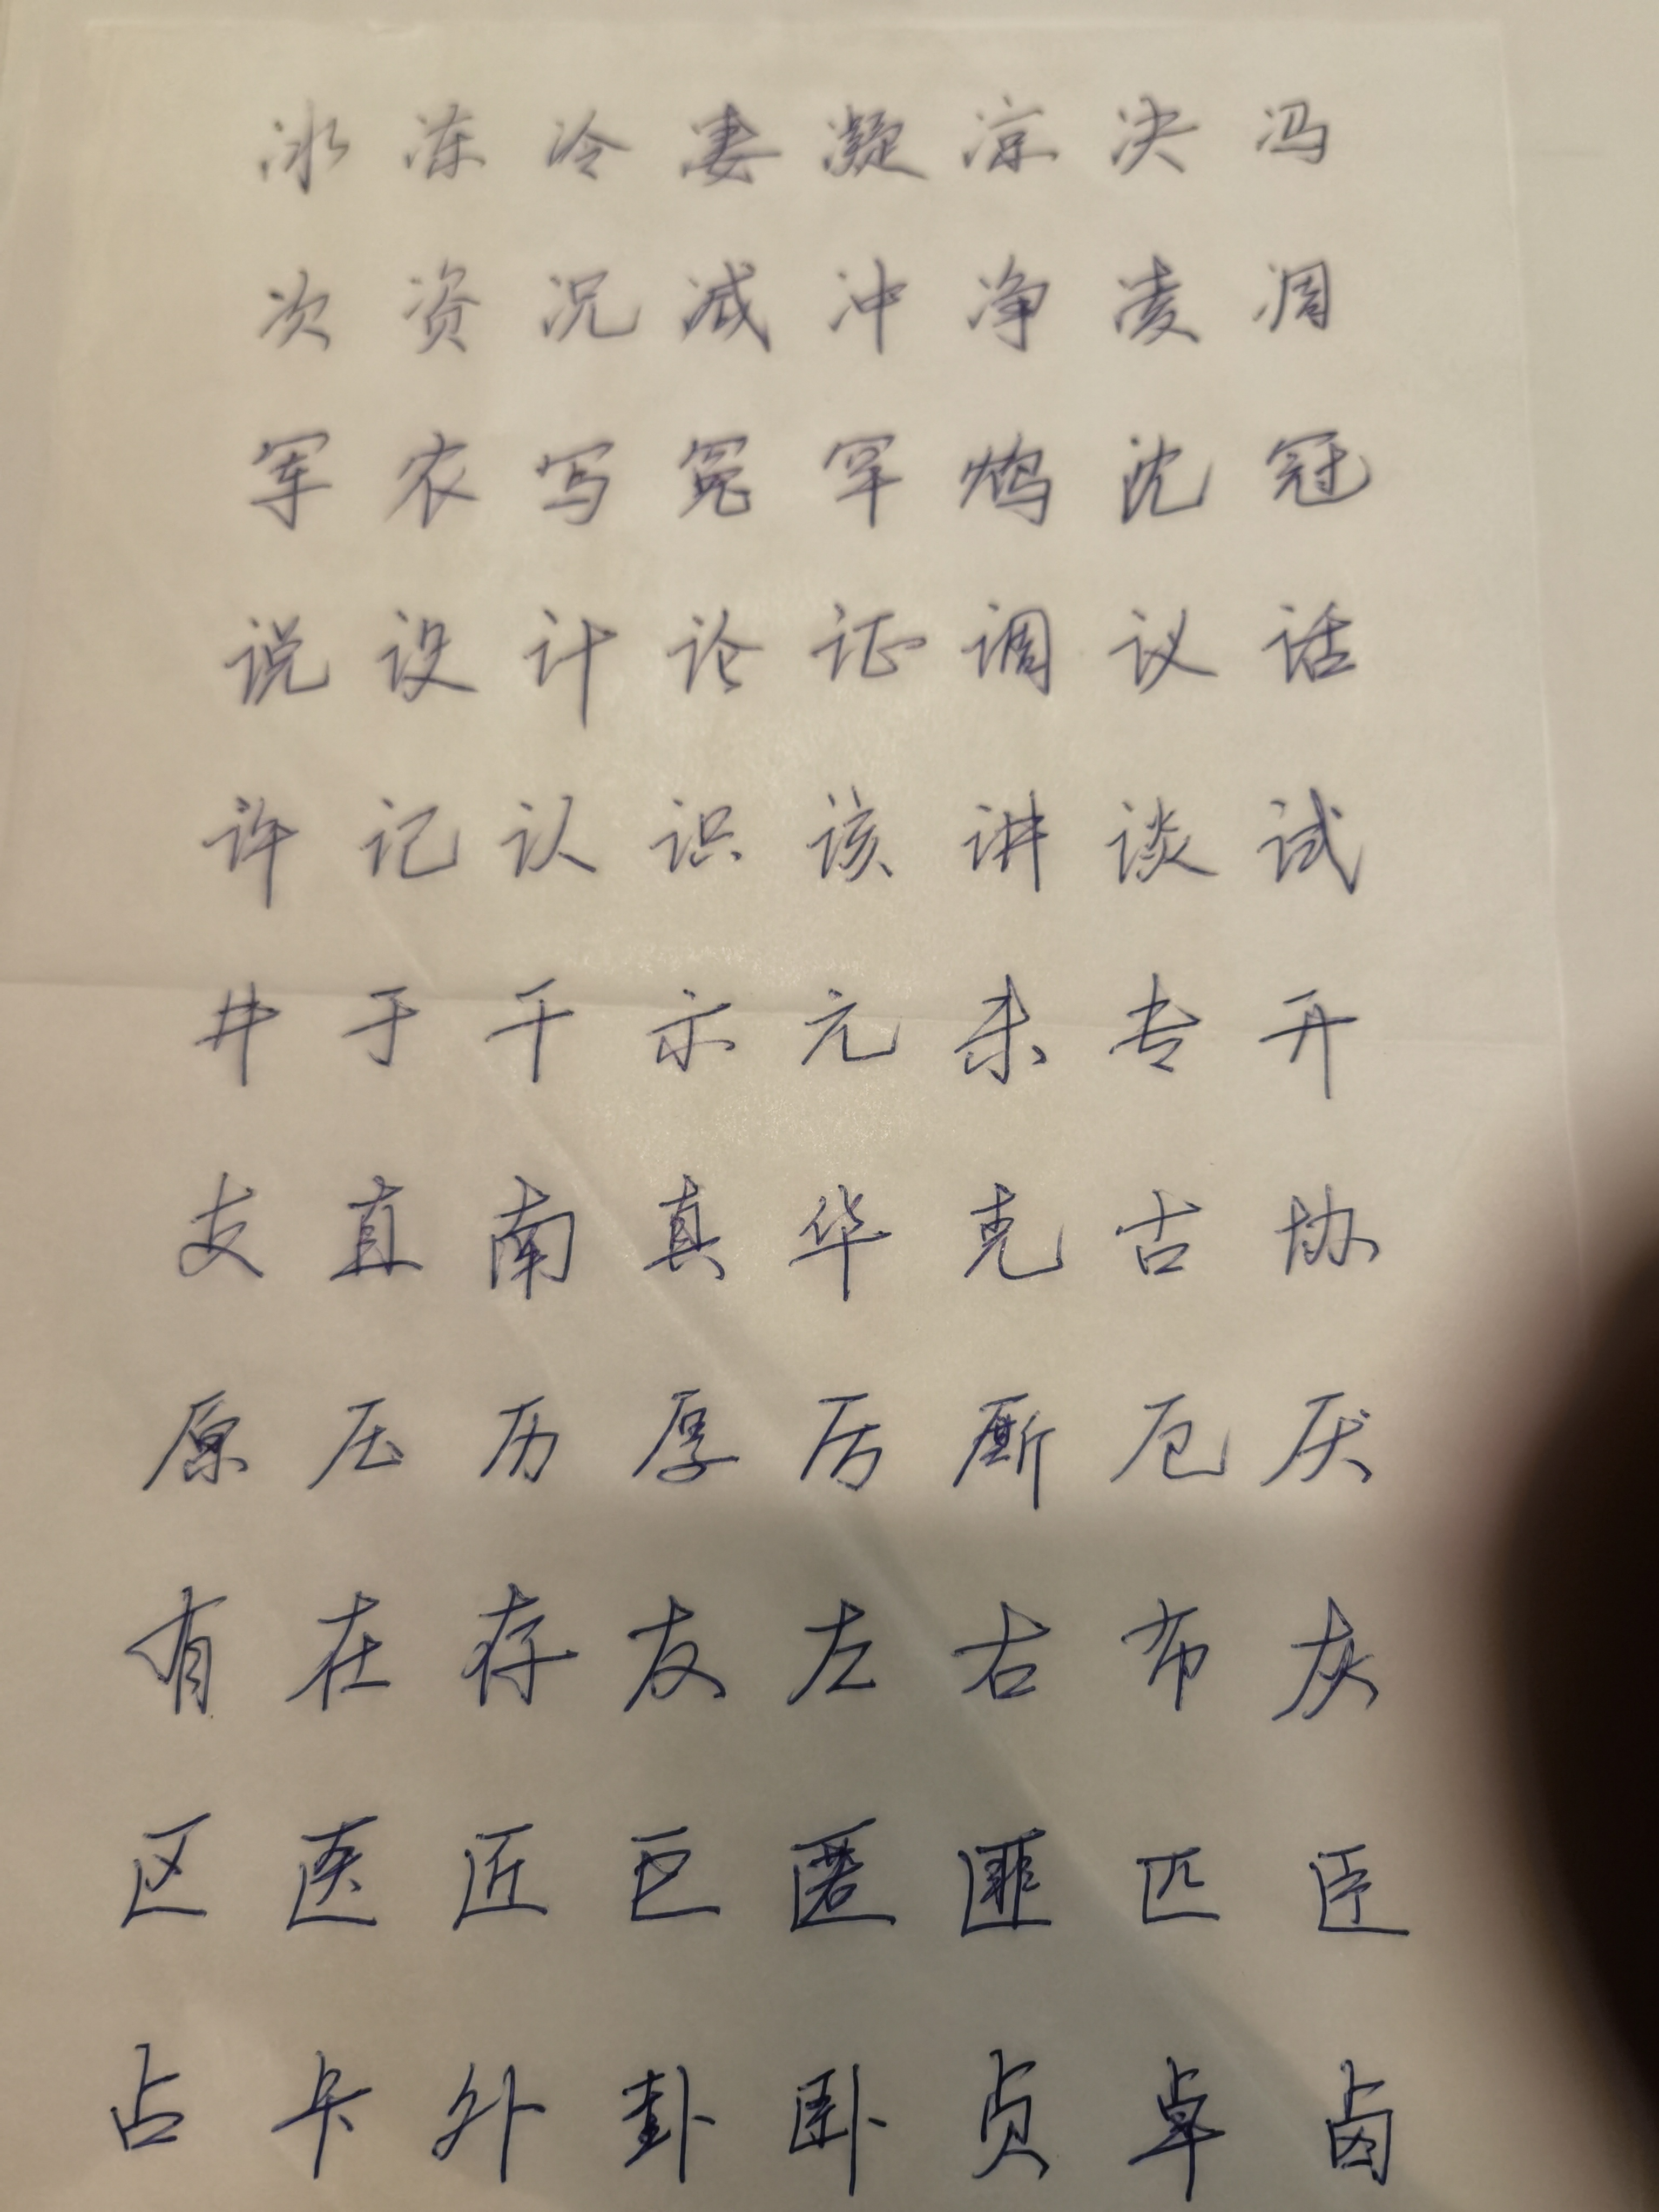 冰冻冷凄凝凉决冯
次资况减冲净凌凋
军农写冤罕鸩沈冠
说设计论证调议话
许记认识该讲谈试
井于干示元未专开
支直南真华克古协
原压历厚厉厮厄厌
有在存友左右布灰
区医匠巨匿匪匹臣
占卡外卦卧贞卓卤